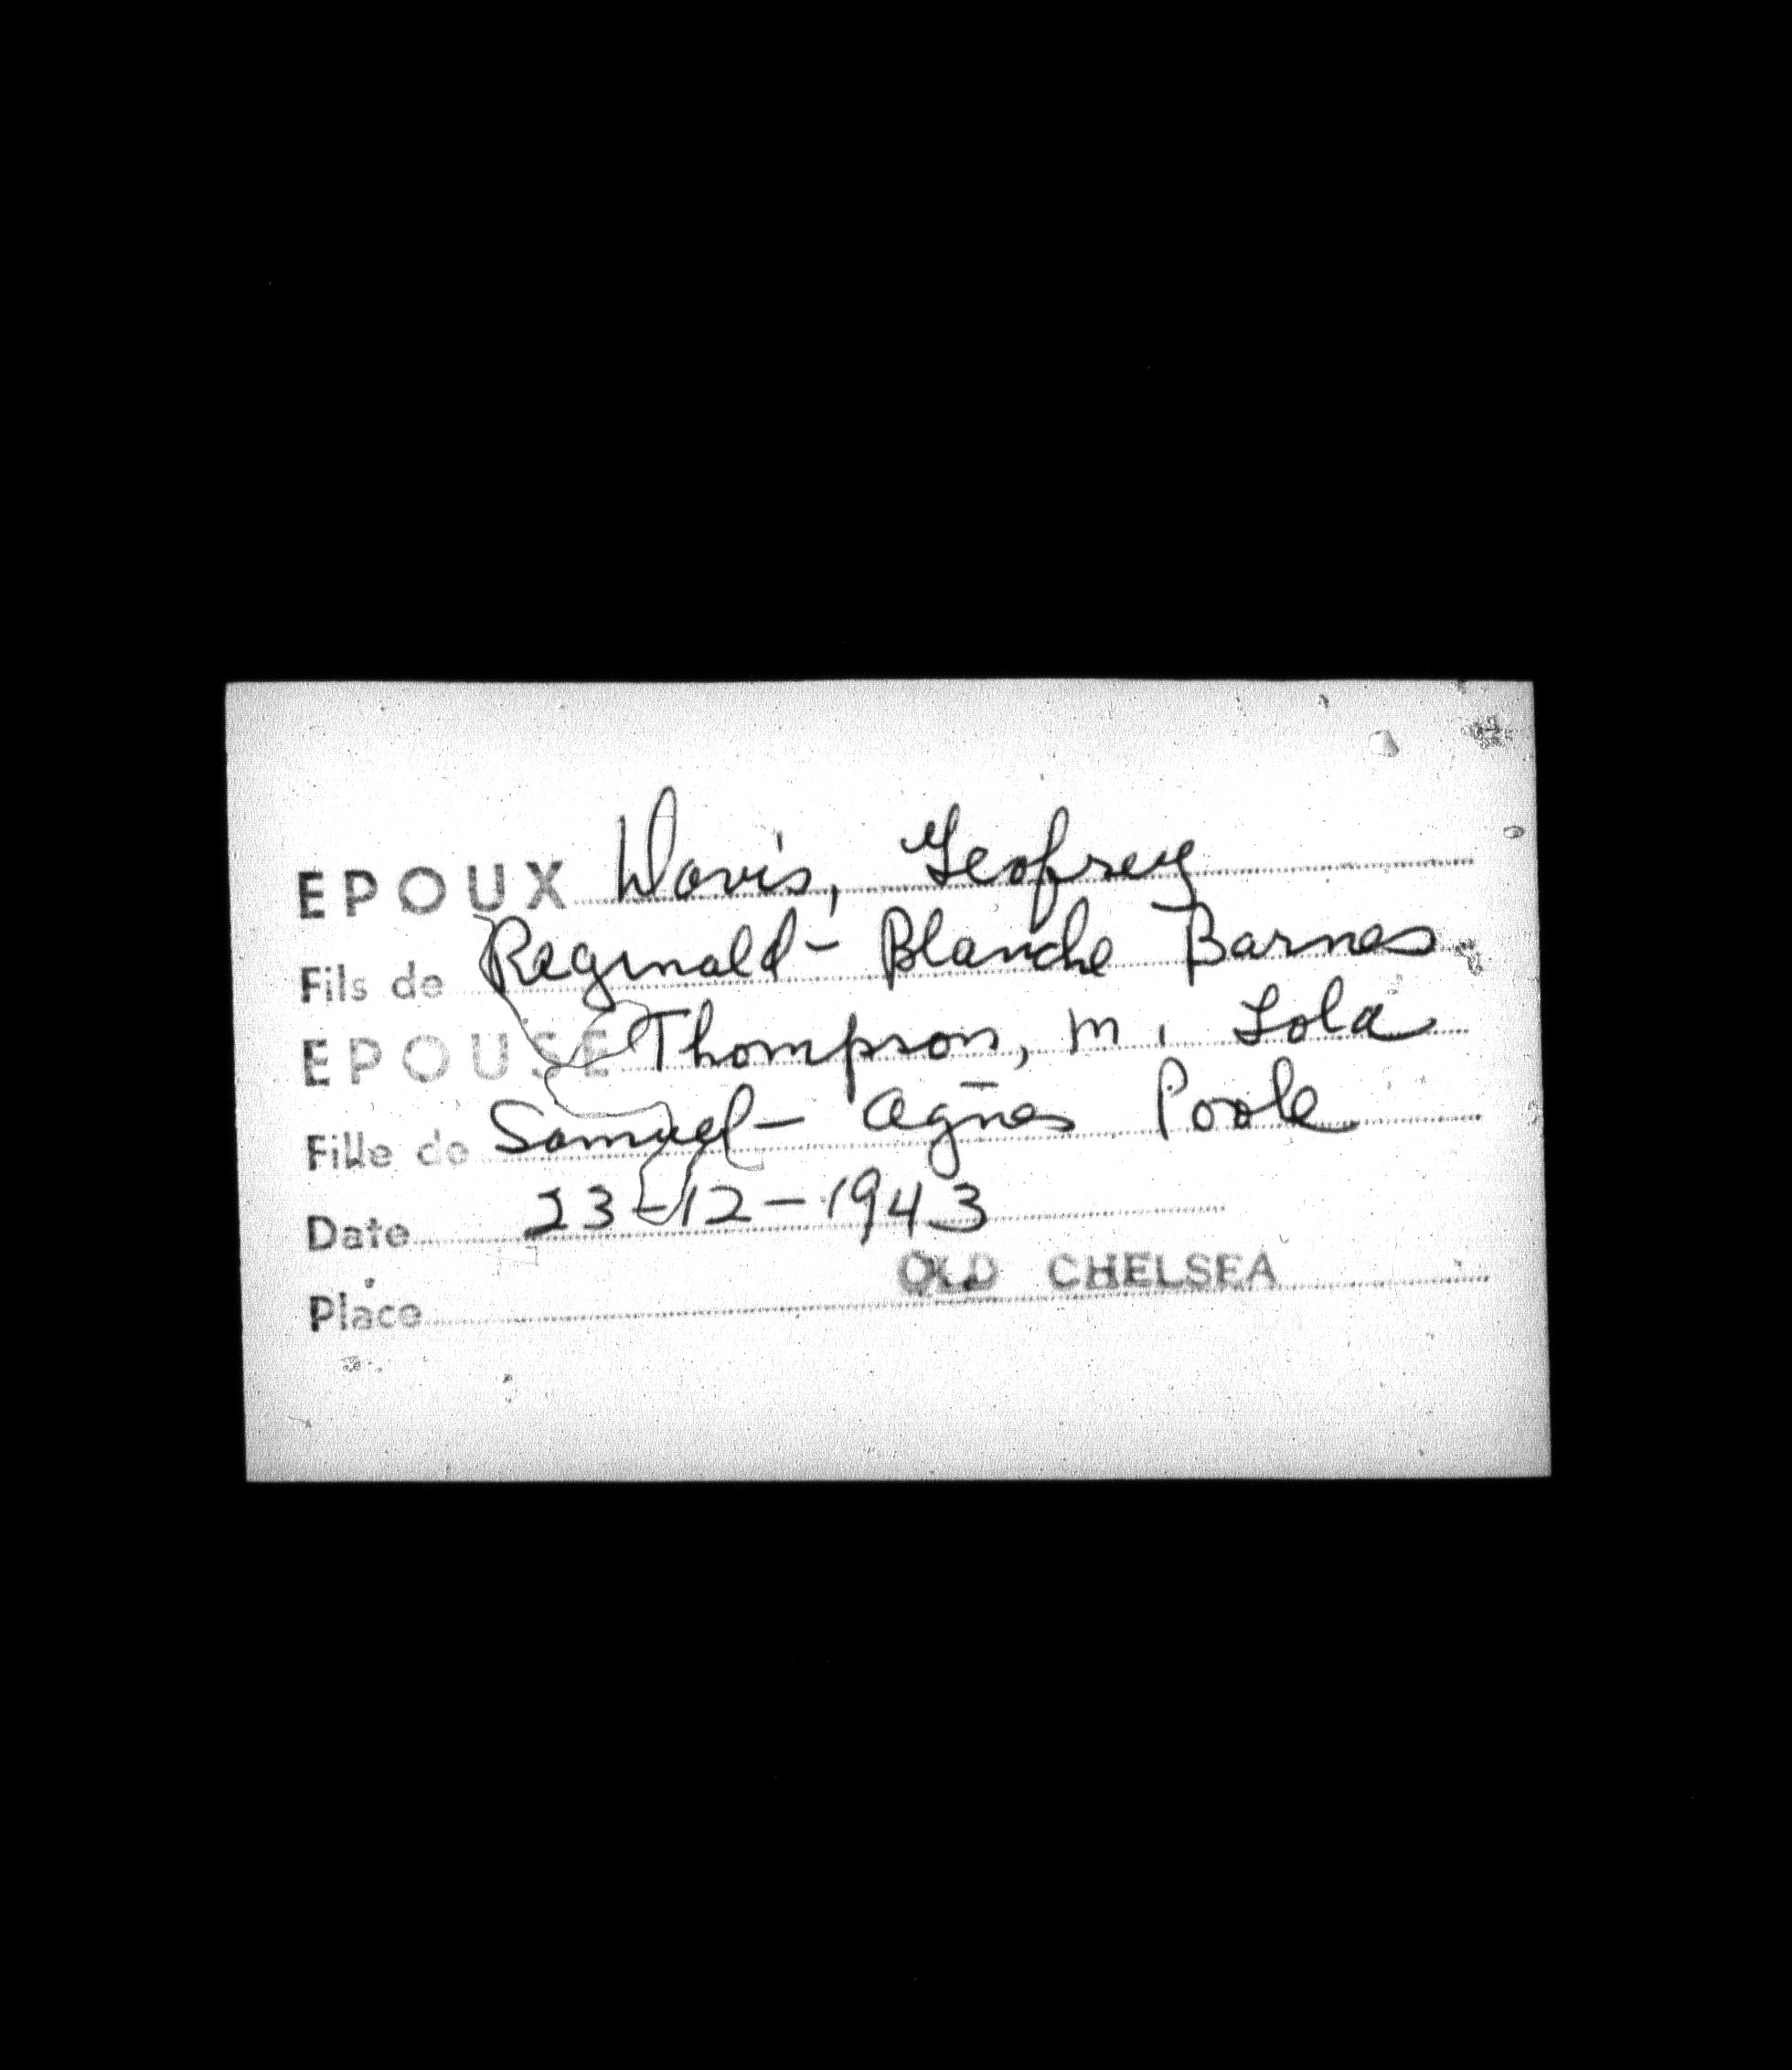 EPOUX Davis, Geofrey
Fils de Reginald - Blanche Barnes
EPOUSE Thompson, M. Lola
Fille de Samuel - Agnes Poole
Date 23-12-1943
OLD CHELSEA
Place